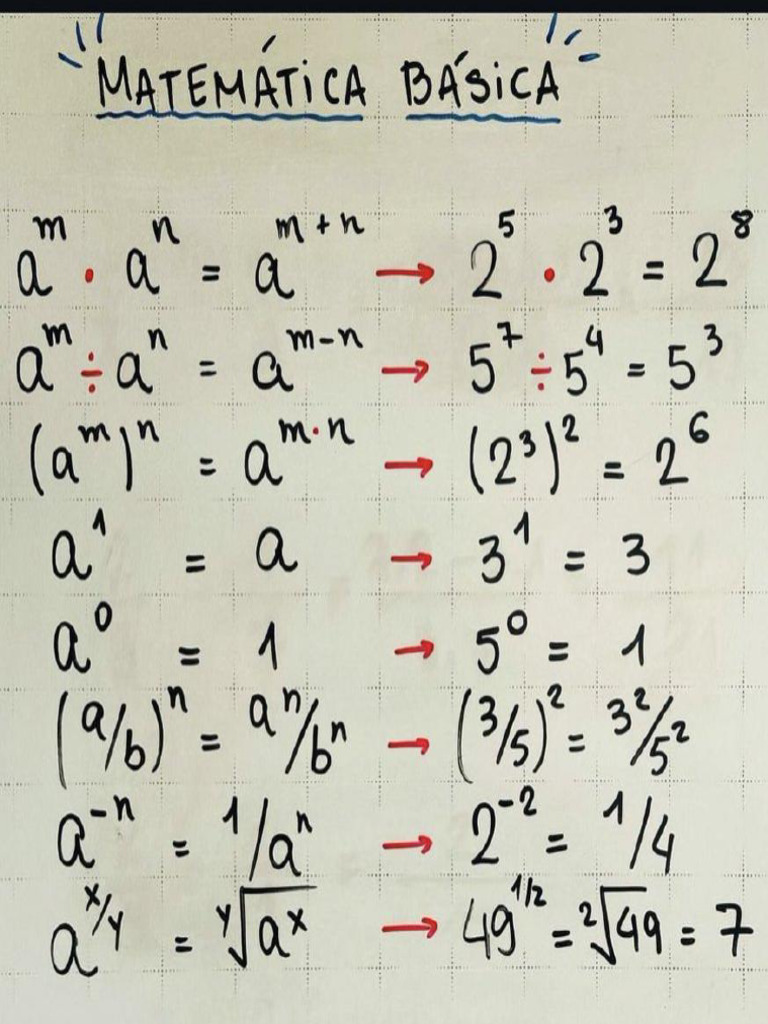 MATEMÁTICA BÁSICA
a^m · a^n = a^(m+n) → 2^5 · 2^3 = 2^8
a^m ÷ a^n = a^(m-n) → 5^7 ÷ 5^4 = 5^3
(a^m)^n = a^(m·n) → (2^3)^2 = 2^6
a^1 = a → 3^1 = 3
a^0 = 1 → 5^0 = 1
(a/b)^n = a^n/b^n → (3/5)^2 = 3^2/5^2
a^-n = 1/a^n → 2^-2 = 1/4
a^(x/y) = ʸ√(a^x) → 49^(1/2) = ²√49 = 7